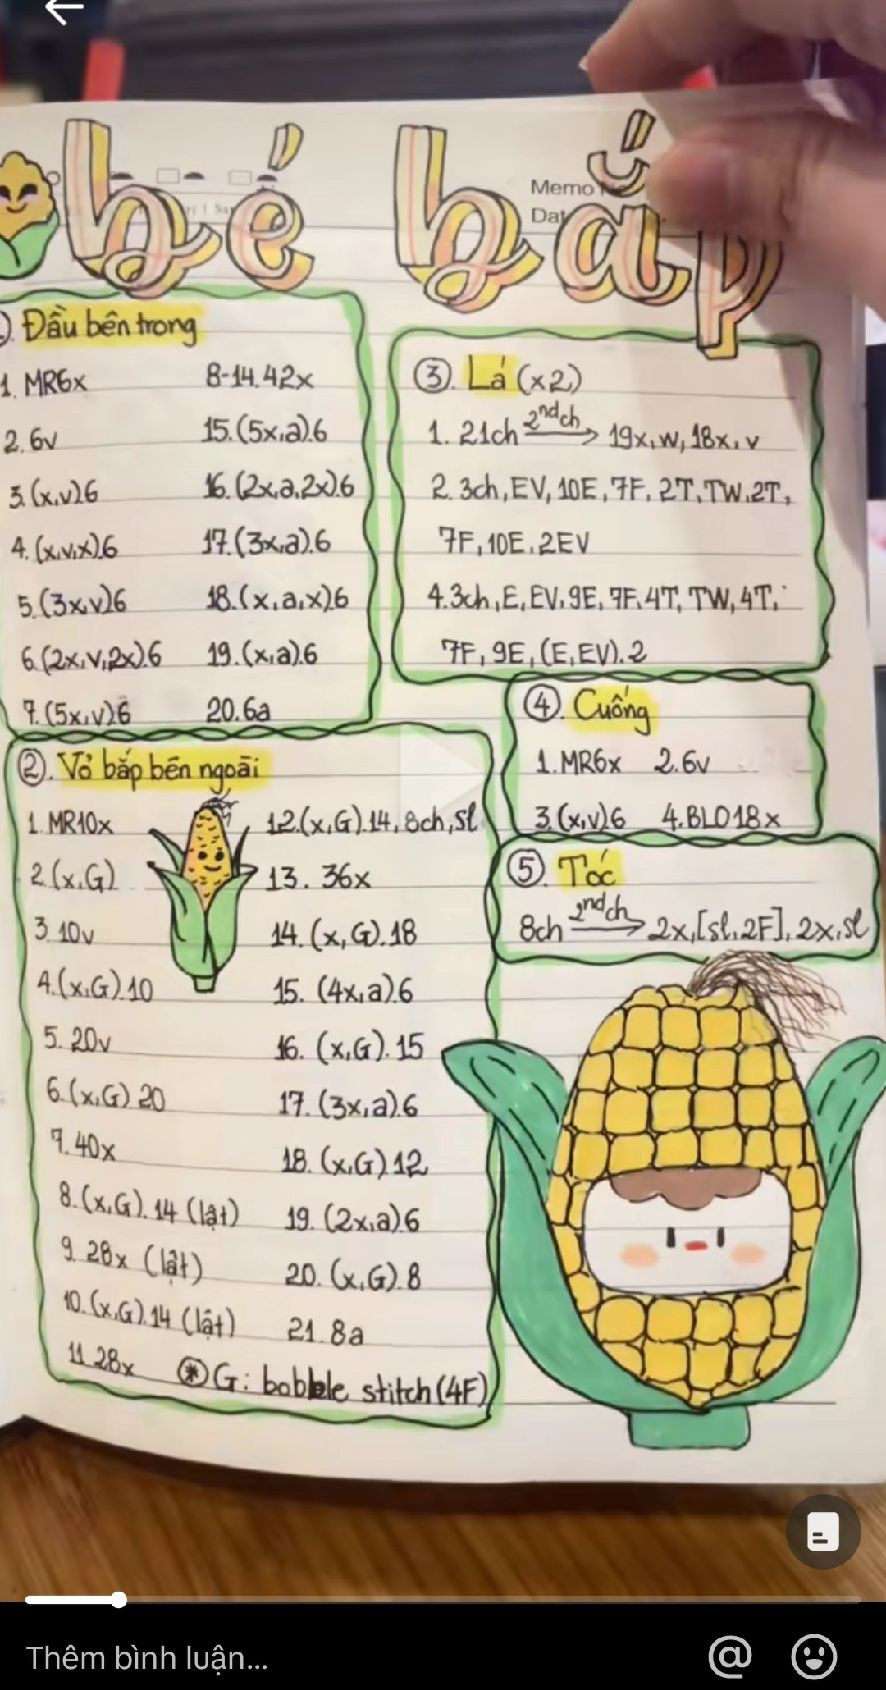 bé bắp
Memo
Dat
Đầu bên trong
1. MR6x
2. 6v
3. (x,v).6
4. (x,v,x).6
5. (3x,v).6
6. (2x,v,2x).6
7. (5x,v).6
8-14. 42x
15. (5x,a).6
16. (2x,a,2x).6
17. (3x,a).6
18. (x,a,x).6
19. (x,a).6
20. 6a
②. Vỏ bắp bên ngoài
1. MR10x
2. (x,G)
3. 10v
4. (x,G).10
5. 20v
6. (x,G) 20
7. 40x
8. (x,G).14 (lật)
9. 28x (lật)
10. (x,G).14 (lật)
11. 28x
12. (x,G).14, 8ch, sl
13. 36x
14. (x,G).18
15. (4x,a).6
16. (x,G).15
17. (3x,a).6
18. (x,G) 12
19. (2x,a).6
20. (x,G).8
21. 8a
* G: bobble stitch (4F)
③. Lá (x2)
1. 21ch 2nd ch → 19x, w, 18x, v
2. 3ch, EV, 10E, 7F, 2T, TW, 2T,
7F, 10E, 2EV
4. 3ch, E, EV, 9E, 7F, 4T, TW, 4T,
7F, 9E, (E, EV).2
④. Cuống
1. MR6x 2. 6v
3. (x,v)6 4. BLO 18x
⑤. Tóc
8ch 2nd ch → 2x, [sl, 2F], 2x, sl
Thêm bình luận...
@